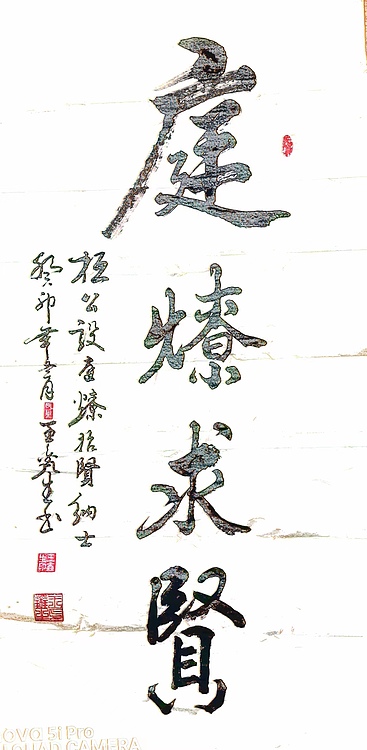 庭燎求賢
桓公設庭燎招賢納士
癸卯年 月 王 生书
OVO 5i Pro
QUAD CAMERA